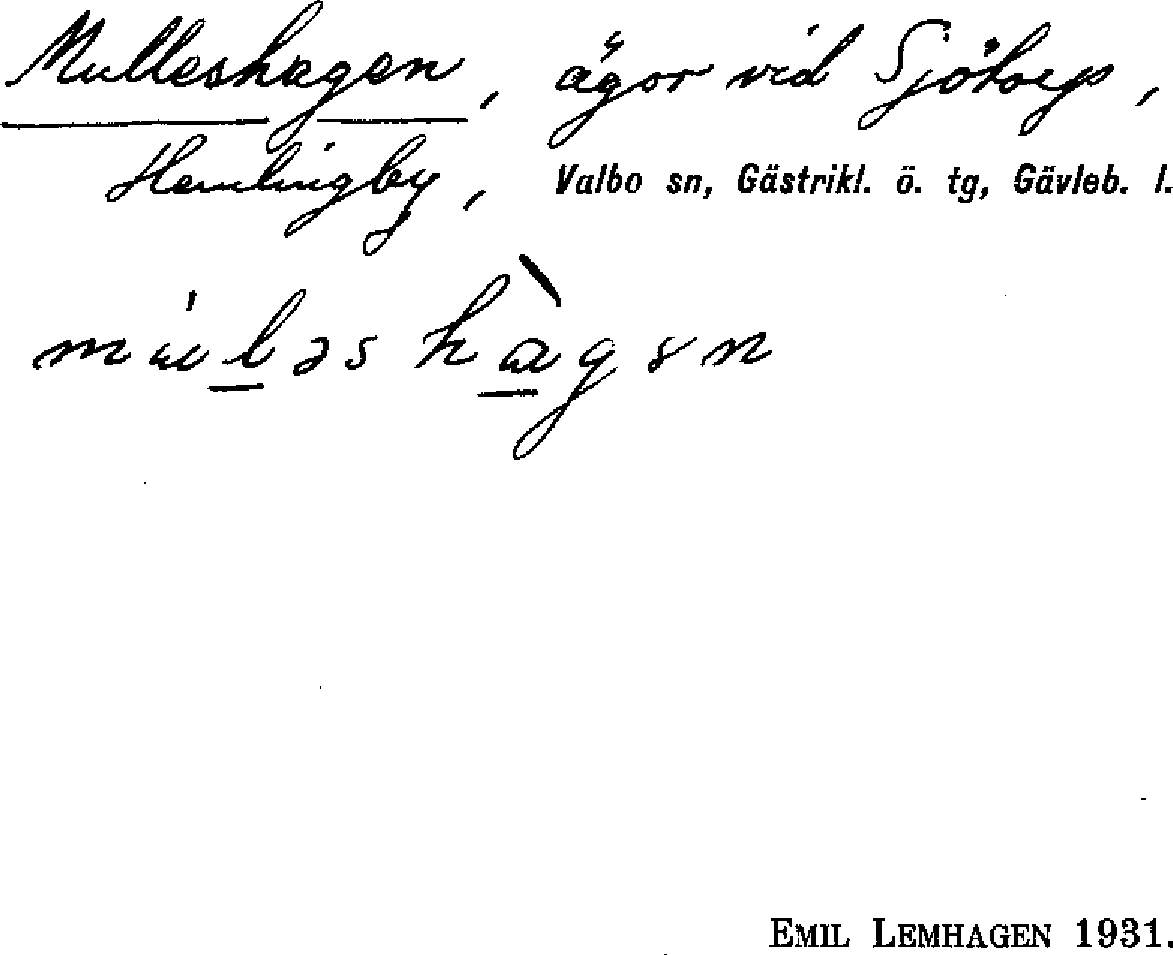 Mulleshagen, ägor vid Sjötorp,
Hemlingby, Valbo sn, Gästrikl. ö. tg, Gävleb. l.
múləshàgən
EMIL LEMHAGEN 1931.